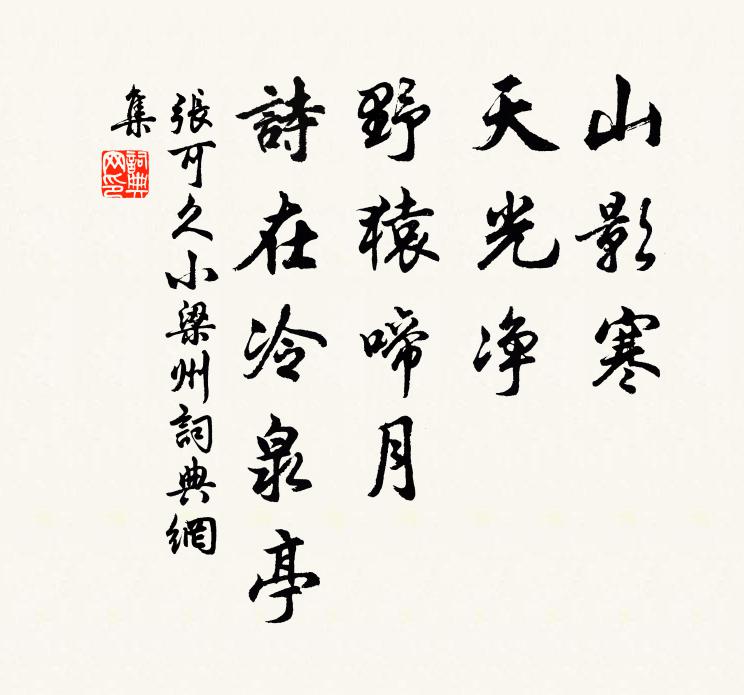 山影寒
天光净
野猿啼月
詩在冷泉亭
張可久小梁州詞典網
集
詞典
网印